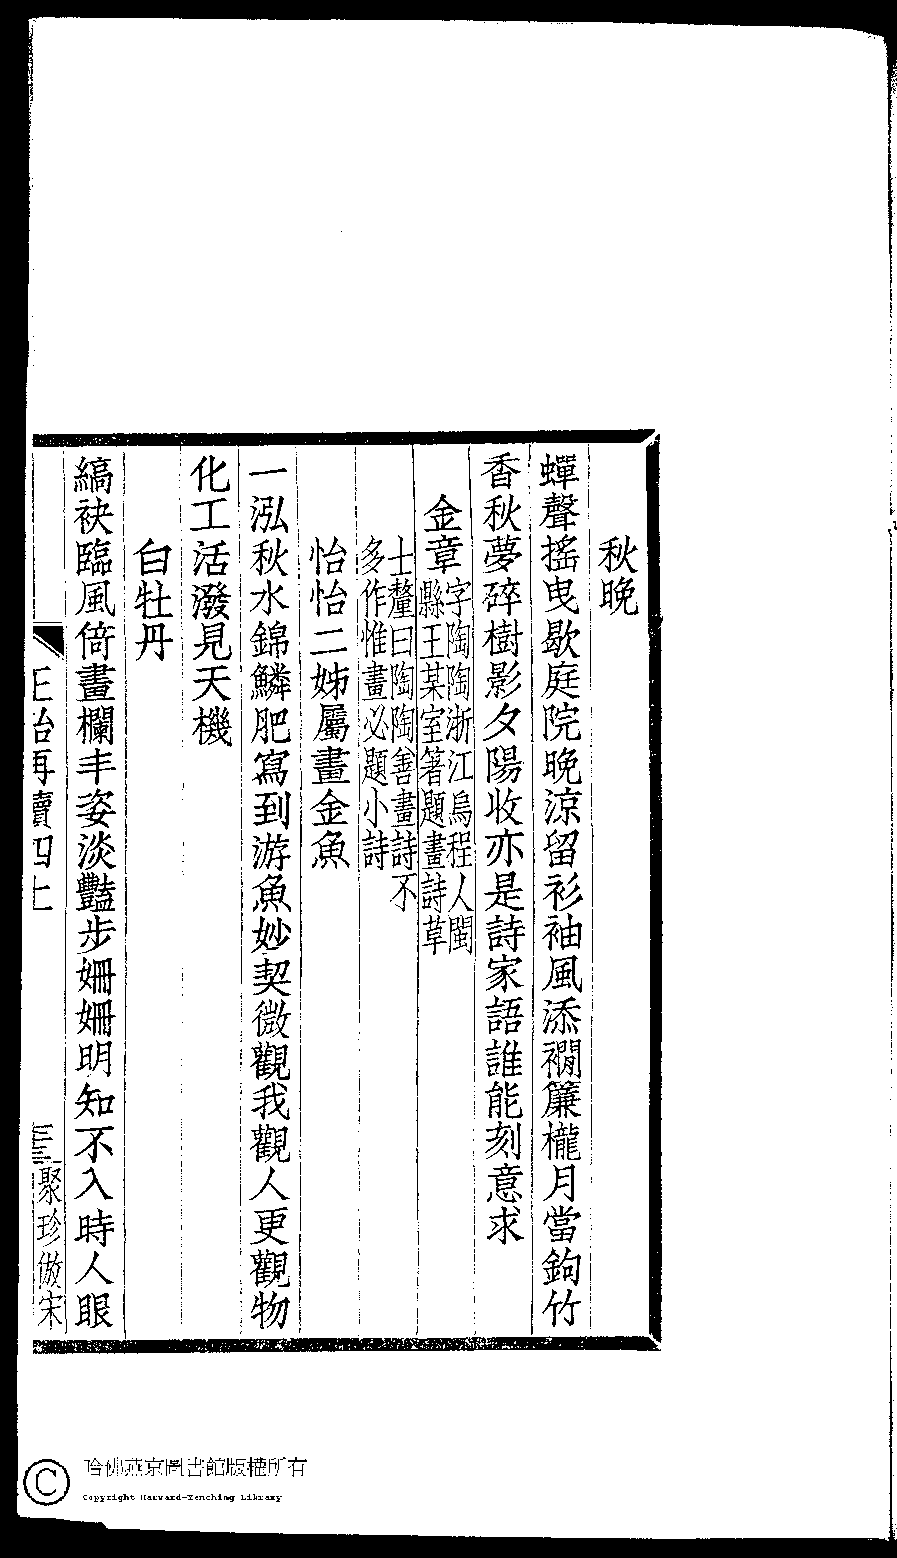 秋晚
蟬聲搖曳歇庭院晚涼留衫袖風添襉簾櫳月當鉤竹
香秋夢碎樹影夕陽收亦是詩家語誰能刻意求
金章字陶陶浙江烏程人閩
縣王某室著題畫詩草
士釐曰陶陶善畫詩不
多作惟畫必題小詩
怡怡二姊屬畫金魚
一泓秋水錦鱗肥寫到游魚妙契微觀我觀人更觀物
化工活潑見天機
白牡丹
縞袂臨風倚畫欄丰姿淡豔步姍姍明知不入時人眼
正始再續四上
三
聚珍倣宋
哈佛燕京圖書館版權所有
Copyright Harvard-Yenching Library